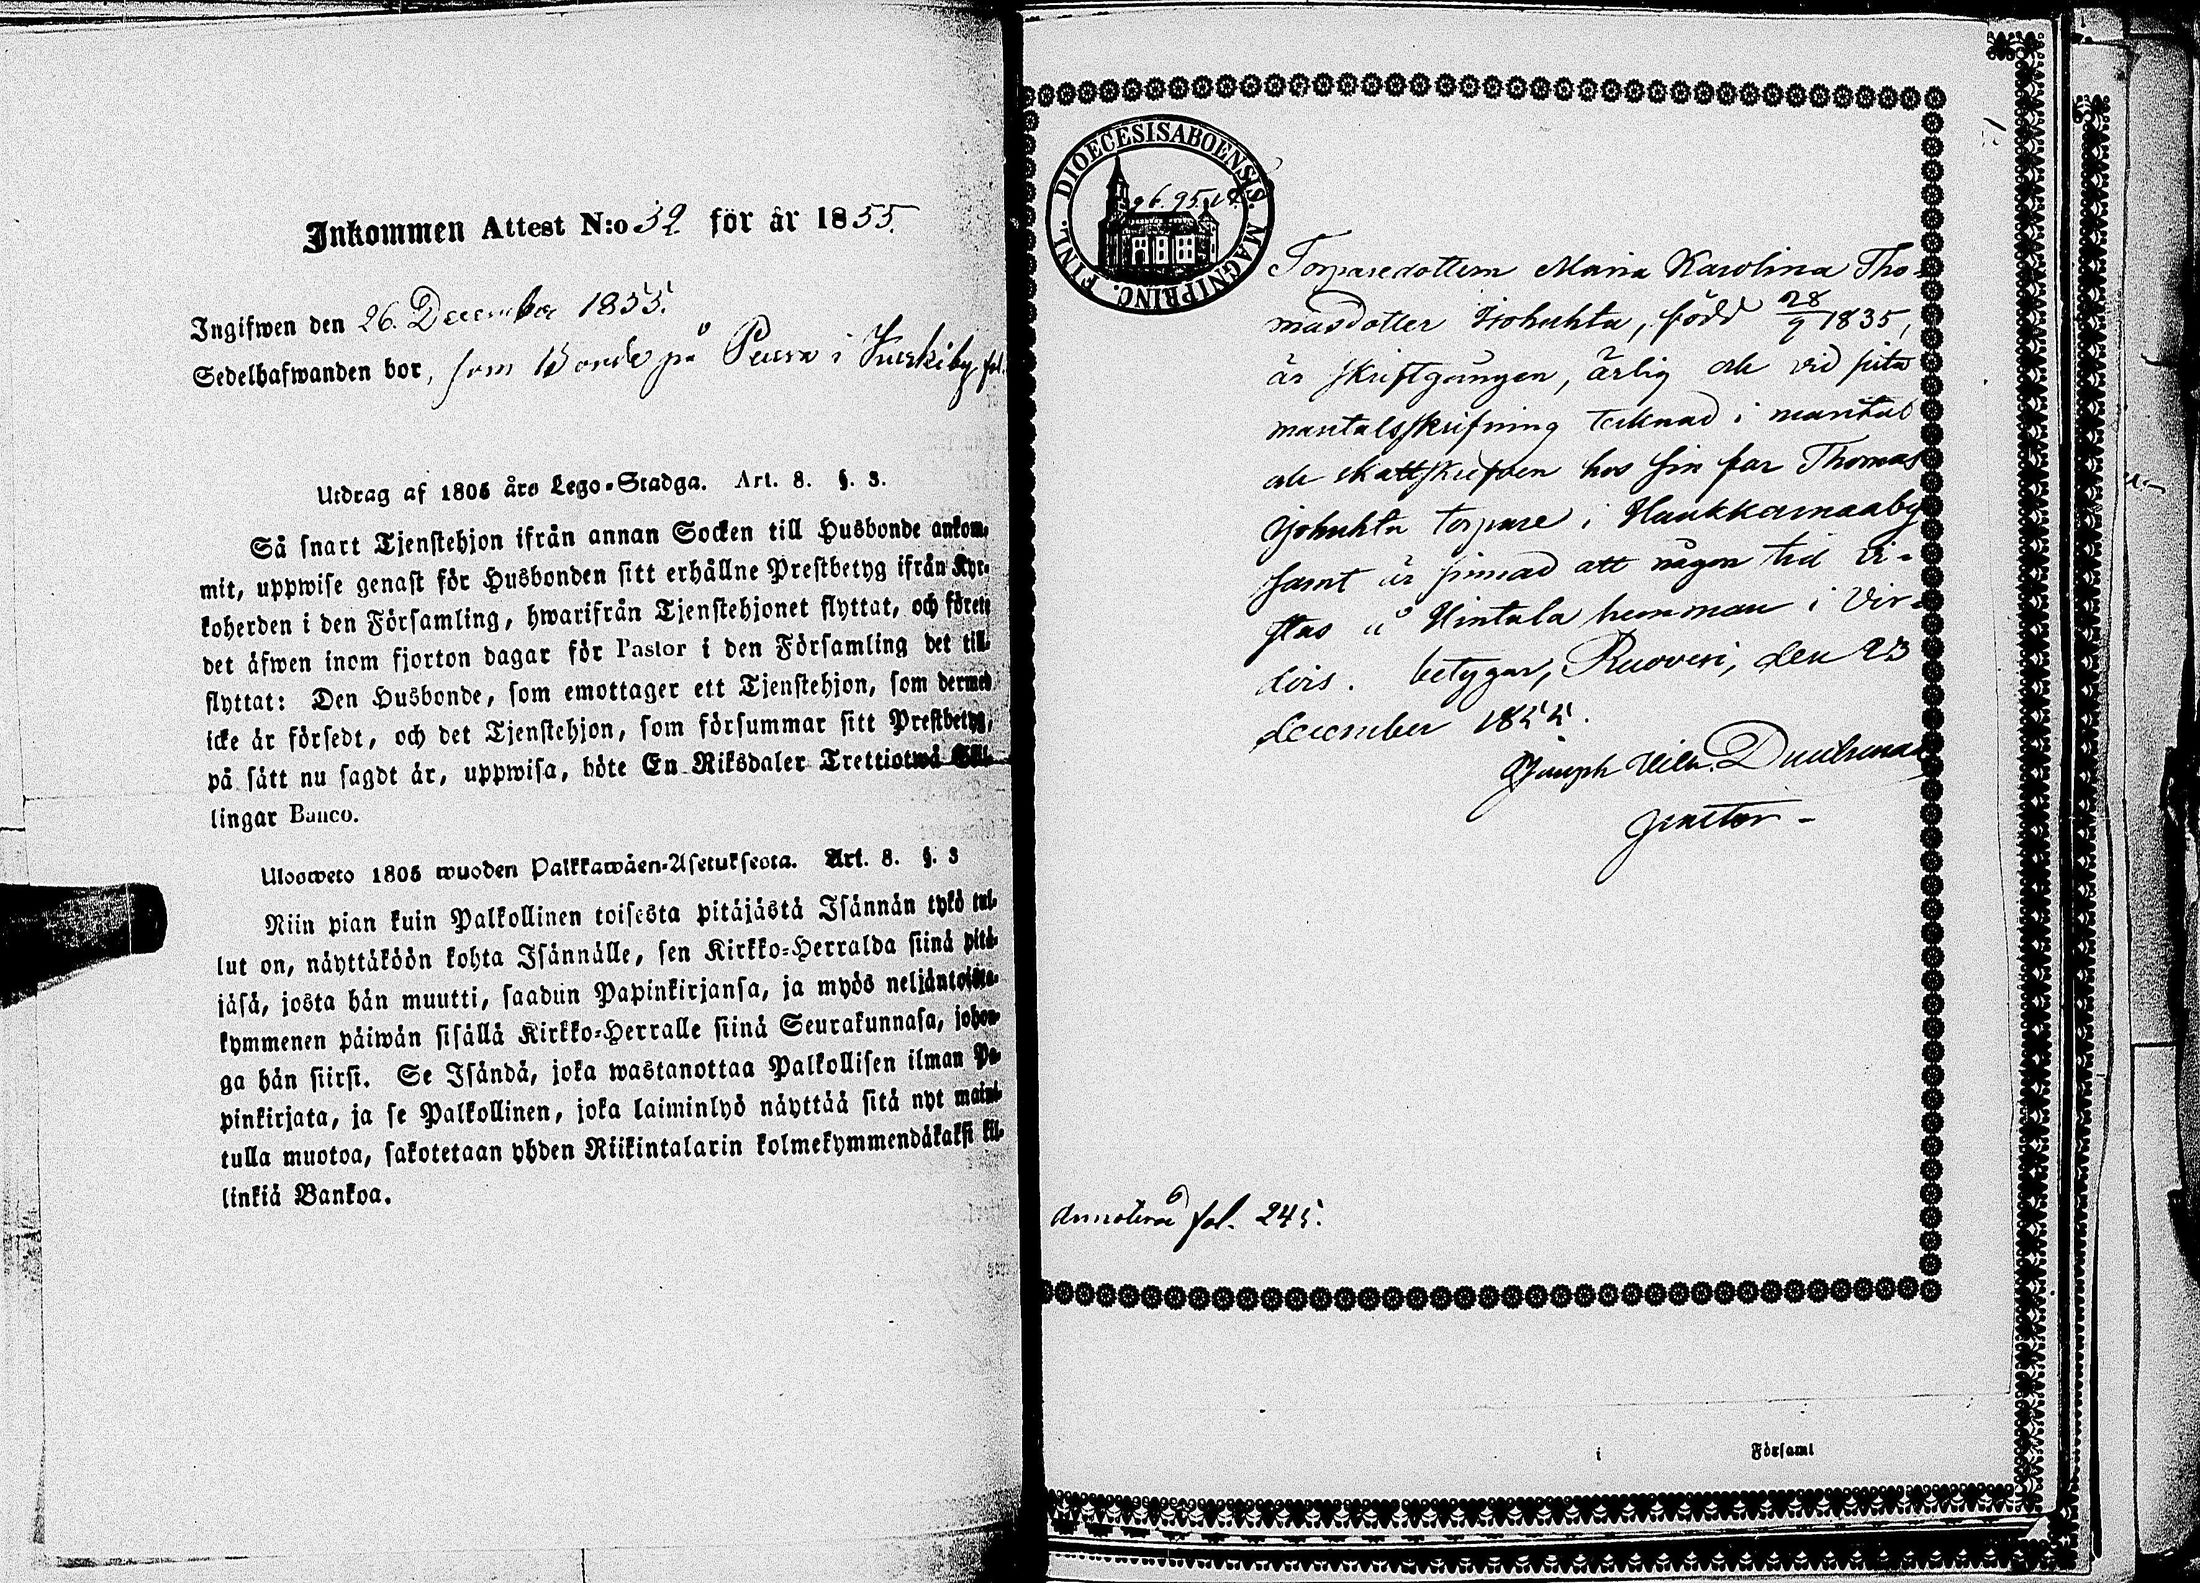 Inkommen Attest N:o 39. för år 1855.
Ingifwen den 26. December 1855.
Sedelhafwanden bor, som Bonde på Peura i Kurkiby, fol.
Utdrag af 1805 års Lego-Stadga. Art. 8. §. 3.
Så snart Tjenstehjon ifrån annan Socken till Husbonde ankom-
mit, uppwise genast för Husbonden sitt erhållne Prestbetyg ifrån Kyr-
koherden i den Församling, hwarifrån Tjenstehjonet flyttat, och förete
det äfwen inom fjorton dagar för Pastor i den Församling det till-
flyttat: Den Husbonde, som emottager ett Tjenstehjon, som dermed
icke är försedt, och det Tjenstehjon, som försummar sitt Prestbetyg,
på sätt nu sagdt är, uppwisa, böte En Riksdaler Trettiotwå Skil-
lingar Banco.
Uloosweto 1805 wuoden Palkkawäen-Asetuksesta. Art. 8. §. 3
Niin pian kuin Palkollinen toisesta pitäjästä Isännän tykö tul-
lut on, näyttäköön kohta Isännälle, sen Kirkko-Herralda siinä pitä-
jäsä, josta hän muutti, saadun Papinkirjansa, ja myös neljäntoista-
kymmenen päiwän sisällä Kirkko-Herralle siinä Seurakunnasa, johon-
ga hän siirsi. Se Isändä, joka wastanottaa Palkollisen ilman Pa-
pinkirjata, ja se Palkollinen, joka laiminlyö näyttää sitä nyt maini-
tulla muotoa, sakotetaan yhden Riikintalarin kolmekymmendäkaksi kil-
linkiä Bankoa.
FINL. DIOECESIS ABOENSIS. MAGNI PRINC.
Torparedottern Maria Karolina Tho-
masdotter Ijohuhta, född 28/9 1835,
är skriftgången, ärlig och vid sista
mantalsskrifning tecknad i mantal
och skattskrifven hos sin far Thomas
Ijohuhta torpare i Haukkamaaby
samt är sinnad att någon tid vi-
stas å Hintala hemman i Vir-
dois. betygar, Ruovesi, den 23
december 1855.
Joseph Vilh.
Annoterad fol. 245.
i Församl